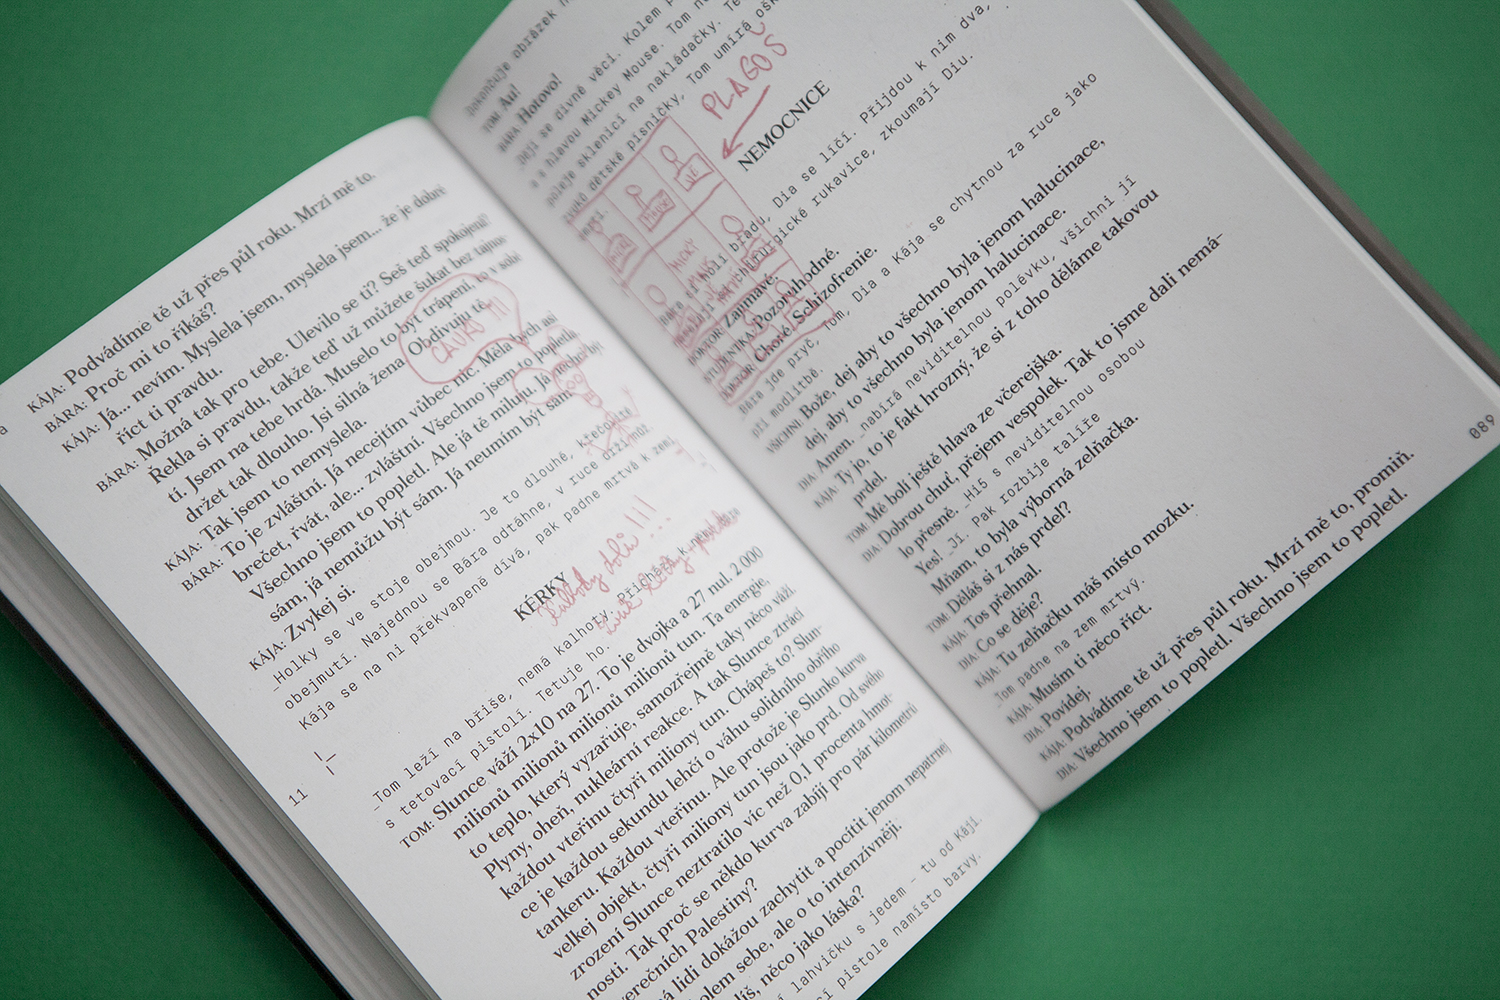 KÁJA: Podvádíme tě už přes půl roku. Mrzí mě to.
BÁRA: Proč mi to říkáš?
KÁJA: Já... nevím. Myslela jsem, myslela jsem... že je dobré
říct ti pravdu.
BÁRA: Možná tak pro tebe. Ulevilo se ti? Seš teď spokojení?
Řekla si pravdu, takže teď už můžete šukat bez tajností
tí. Jsem na tebe hrdá. Muselo to být trápení, to v sobě
držet tak dlouho. Jsi silná žena Obdivuju tě.
KÁJA: Tak jsem to nemyslela.
BÁRA: To je zvláštní. Já necejtím vůbec nic. Měla bych asi
brečet, řvát, ale... zvláštní. Všechno jsem to popletla.
Všechno jsem to popletl. Ale já tě miluju. Já nechci být
sám, já nemůžu být sám. Já neumím být sám.
KÁJA: Zvykej si.
_Holky se ve stoje obejmou. Je to dlouhé, křečovité
obejmutí. Najednou se Bára odtáhne, v ruce drží nůž.
Kája se na ni překvapeně dívá, pak padne mrtvá k zemi.
CAUKO !!!
11
KÉRKY
Kalhoty dolů !!!
_Tom leží na břiše, nemá kalhoty. Přichází k němu
s tetovací pistolí. Tetuje ho.
TOM: Slunce váží 2x10 na 27. To je dvojka a 27 nul. 2 000
milionů milionů milionů milionů tun. Ta energie,
to teplo, který vyzařuje, samozřejmě taky něco váží.
Plyny, oheň, nukleární reakce. A tak Slunce ztrácí
každou vteřinu čtyři miliony tun. Chápeš to? Slun-
ce je každou sekundu lehčí o váhu solidního obřího
tankeru. Každou vteřinu. Ale protože je Slunko kurva
velkej objekt, čtyři miliony tun jsou jako prd. Od svého
zrození Slunce neztratilo víc než 0,1 procenta hmot-
nosti. Tak proč se někdo kurva zabíjí pro pár kilometrů
verečních Palestiny?
lidí dokážou zachytit a pocítit jenom nepatrnej
kolem sebe, ale o to intenzívněji.
něco jako láska?
lahvičku s jedem – tu od Káji.
pistole namísto barvy.
dokončuje obrázek
TOM: Au!
BÁRA: Hotovo!
_Dějí se divné věci. Kolem
s hlavou Mickey Mouse. Tom
poleje sklenicí na nakládačky.
zvuků dětské písničky, Tom umírá
PLAGOŠ
NEMOCNICE
holí bradu, Dia se líčí. Přijdou k nim dva,
chirurgické rukavice, zkoumají Diu.
DOKTOR: Zajímavé.
STUDENTKA: Pozoruhodné.
DOKTOR: Choré. Schizofrenie.
Bára jde pryč, Tom, Dia a Kája se chytnou za ruce jako
při modlitbě.
VŠICHNI: Bože, dej aby to všechno byla jenom halucinace,
dej, aby to všechno byla jenom halucinace.
DIA: Amen. _nabírá neviditelnou polévku, všichni jí
KÁJA: Ty jo, to je fakt hrozný, že si z toho děláme takovou
prdel.
TOM: Mě bolí ještě hlava ze včerejška.
DIA: Dobrou chuť, přejem vespolek. Tak to jsme dali nemá-
lo přesně. _Hi5 s neviditelnou osobou
Yes! _Jí. Pak rozbije talíře
Mňam, to byla výborná zelňačka.
TOM: Děláš si z nás prdel?
KÁJA: Tos přehnal.
DIA: Co se děje?
KÁJA: Tu zelňačku máš místo mozku.
_Tom padne na zem mrtvý.
KÁJA: Musím ti něco říct.
DIA: Povídej.
KÁJA: Podvádíme tě už přes půl roku. Mrzí mě to, promiň.
DIA: Všechno jsem to popletl. Všechno jsem to popletl.
089